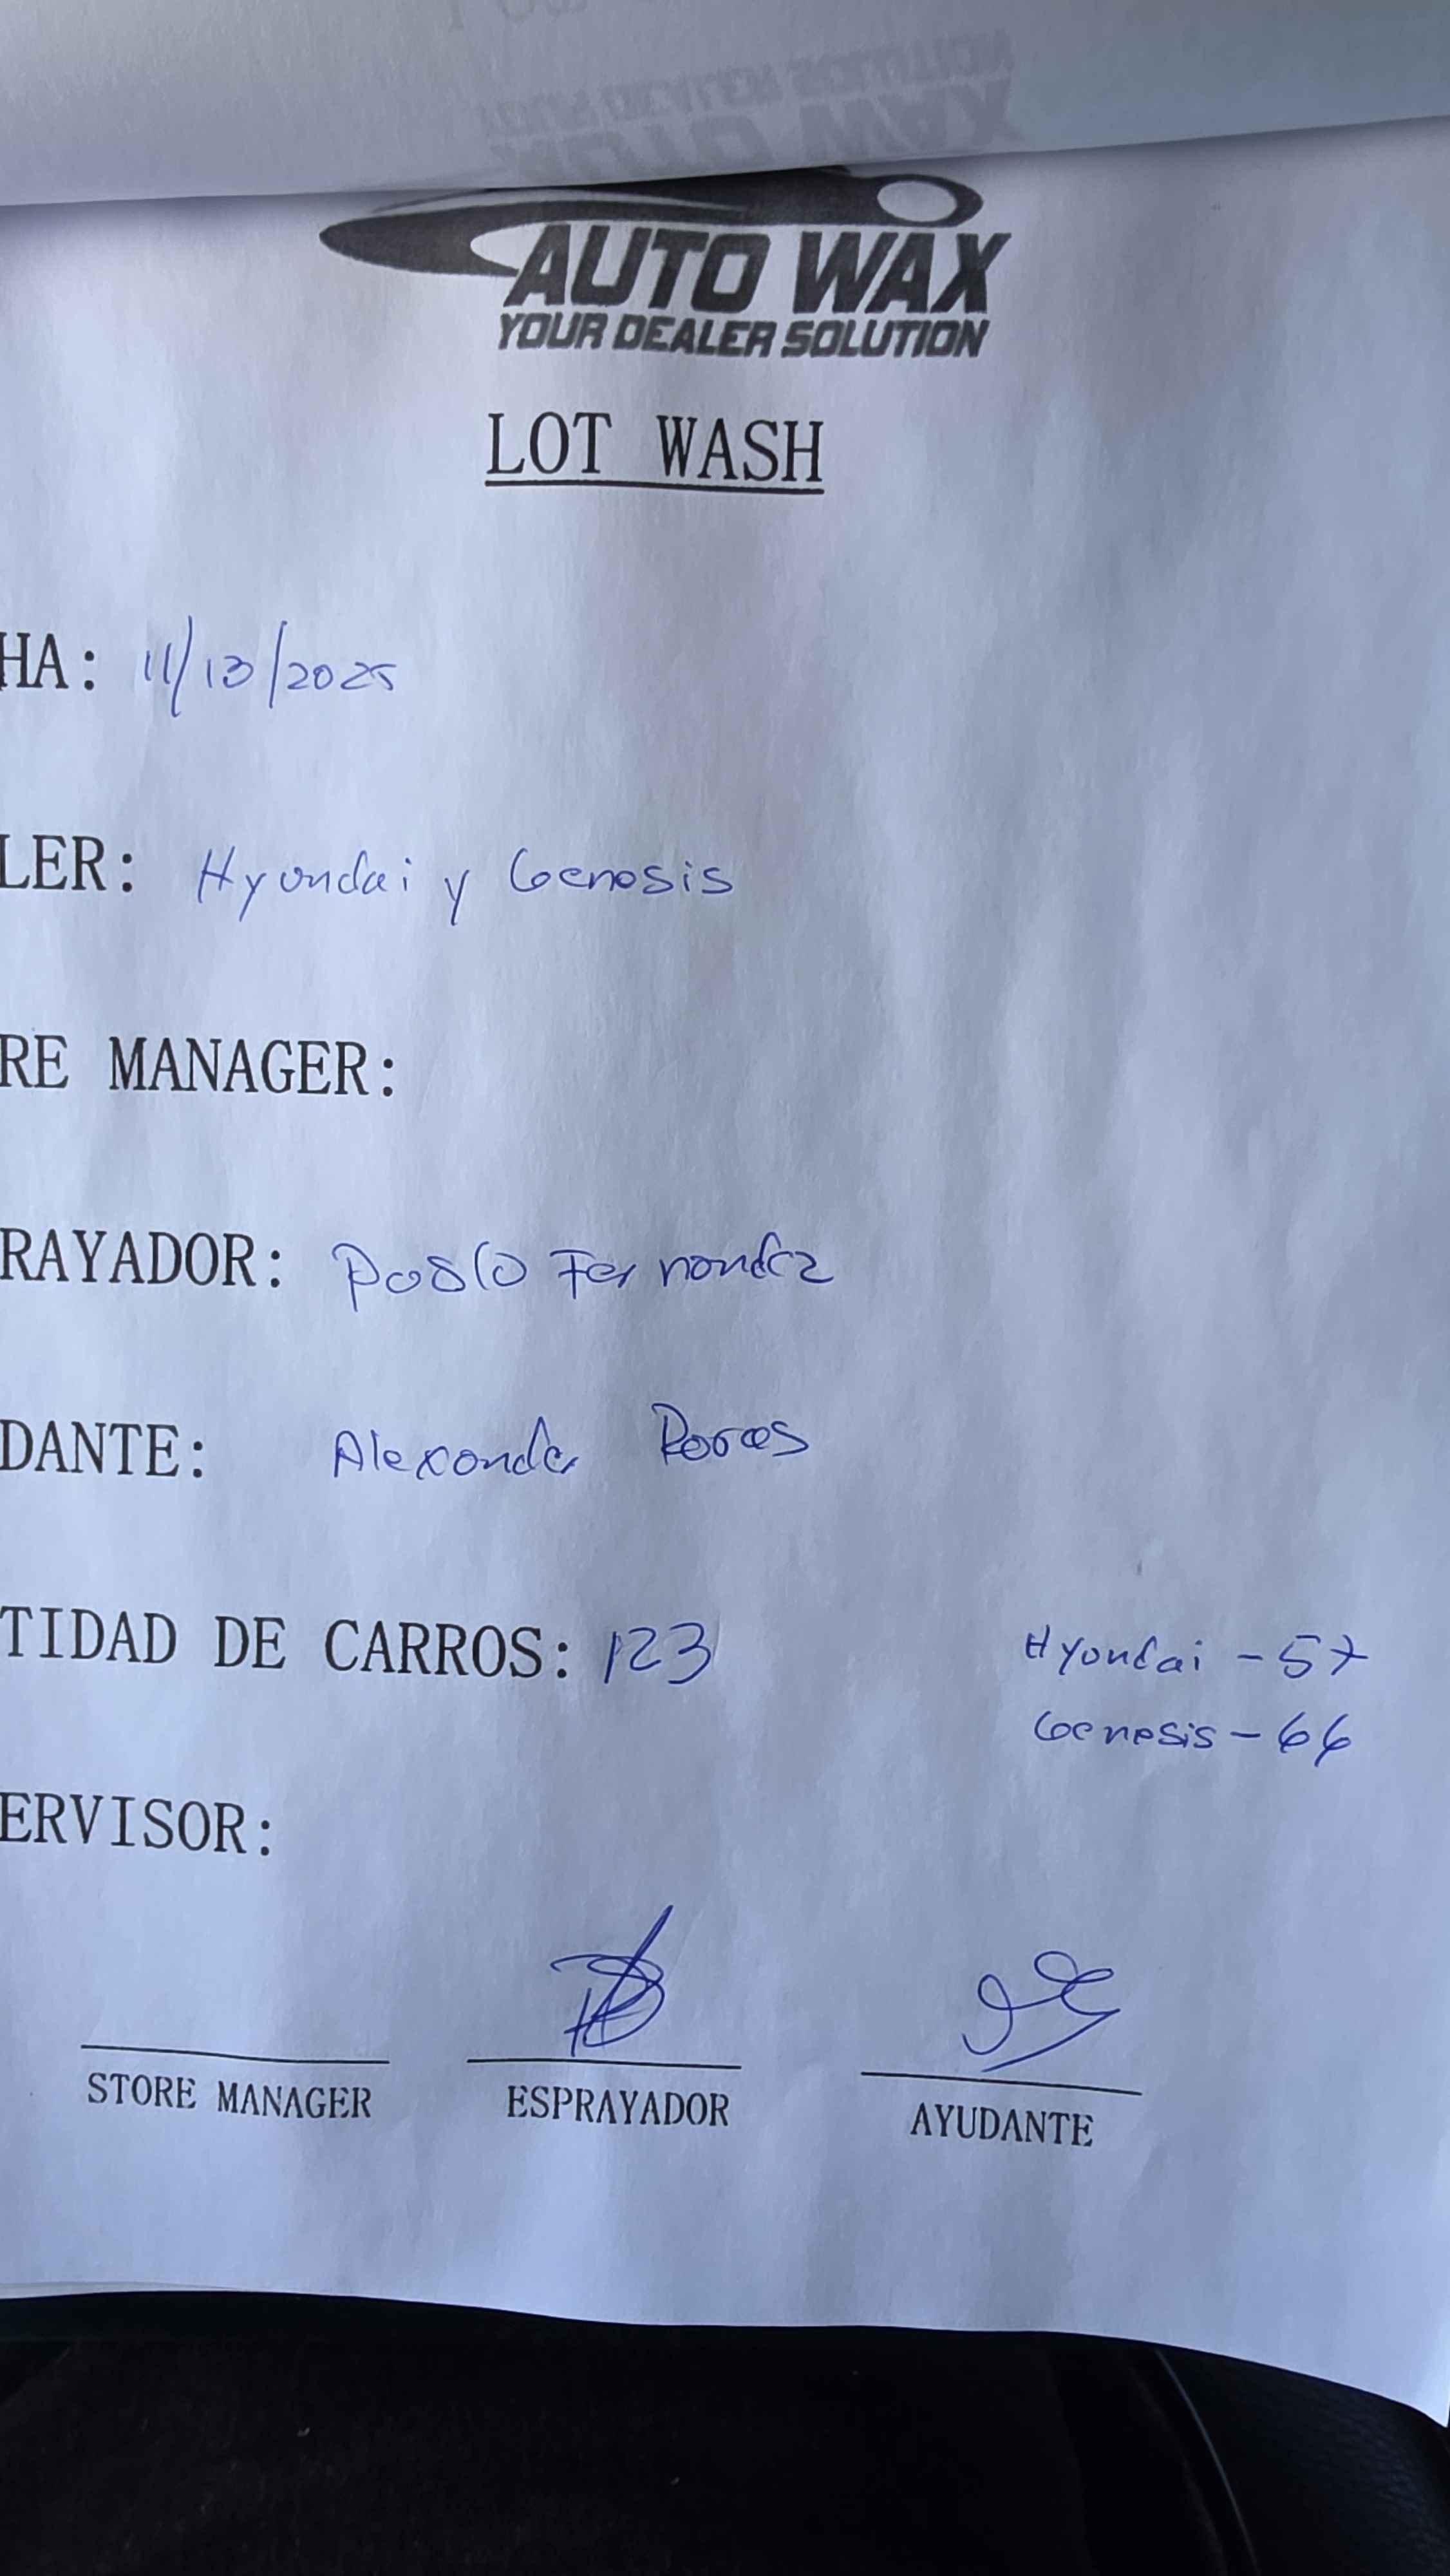 AUTO WAX
YOUR DEALER SOLUTION
LOT WASH
HA: 11/13/2025
LER: Hyundai y Genesis
RE MANAGER:
RAYADOR: Pablo Fernandez
DANTE: Alexander
TIDAD DE CARROS: 123
Hyundai - 57
Genesis - 66
ERVISOR:
STORE MANAGER
ESPRAYADOR
AYUDANTE